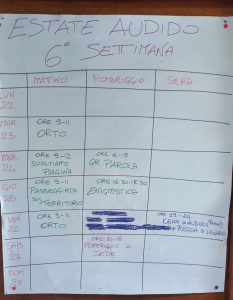 ESTATE AUDIDO
6° SETTIMANA
MATTINO POMERIGGIO SERA
LUN
22
MAR
23
ORE 9-11
ORTO
MER
24
ORE 9-12
SVOLTIAMO
PAGINA
ORE 16-18
GR. PAROLA
GIO
25
ORE 9-11
PASSEGGIATA
SUL
TERRITORIO
ORE 16.30-18.30
ENIGMISTICA
VEN
26
ORE 9-11
ORTO
ORE 19-24
CENA IN AUDIDO
REGGIA DI VENARIA
SAB
27
ORE 15-18
POMERIGGIO IN
SEDE
DOM
28